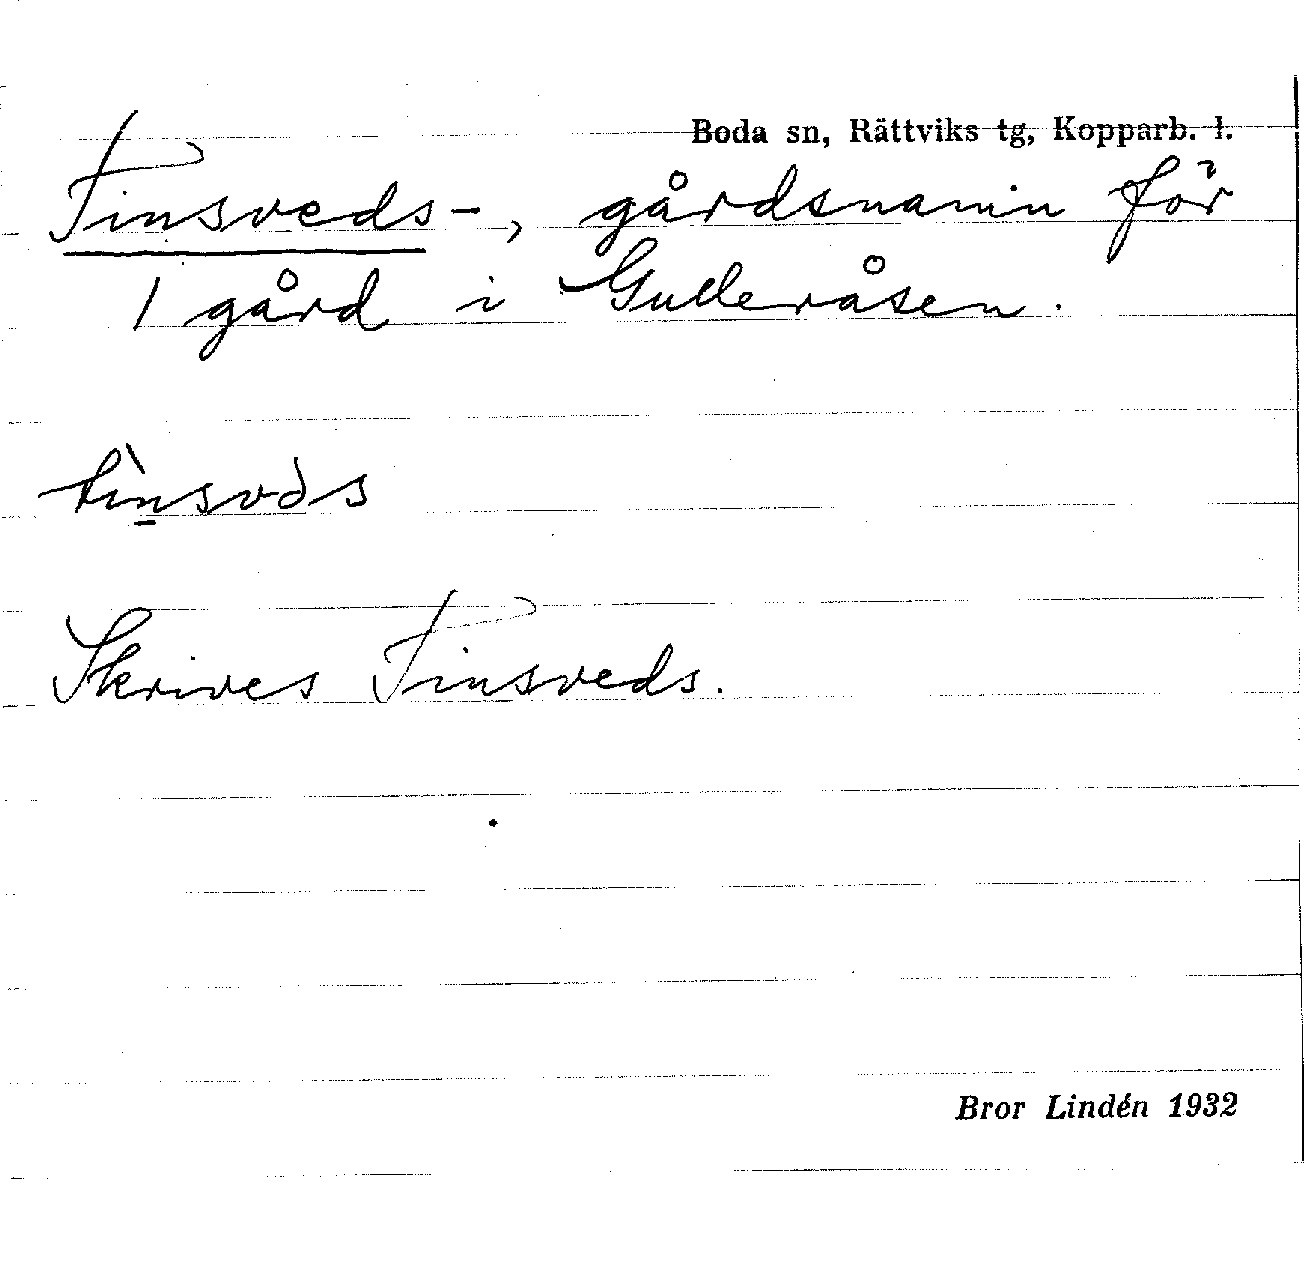 Boda sn, Rättviks tg, Kopparb. l.
Tinsveds-, gårdsnamn för
1 gård i Gulleråsen.
tìn̠svəs
Skrives Tinsveds.
Bror Lindén 1932